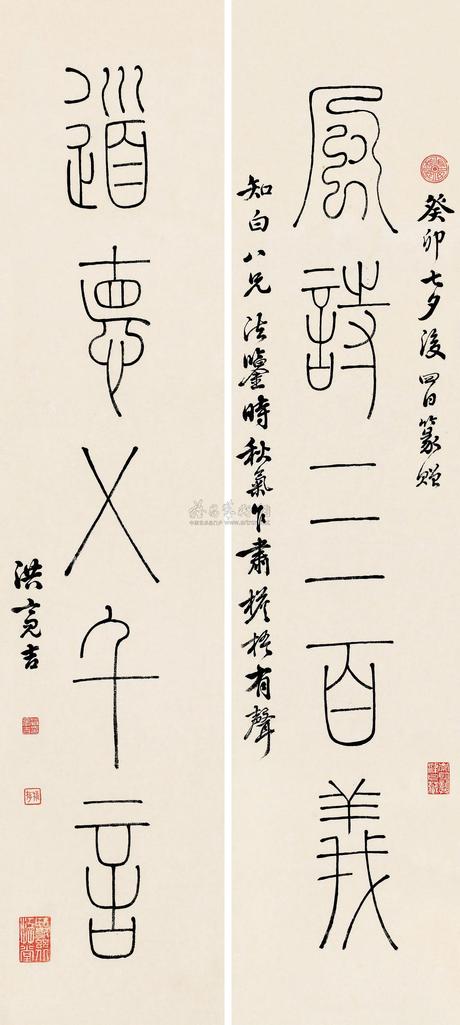 癸卯七夕後四日篆贈
風詩三百義
知白八兄法鑒時秋氣乍肅檐梧有聲
道悳㐅千言
洪亮吉